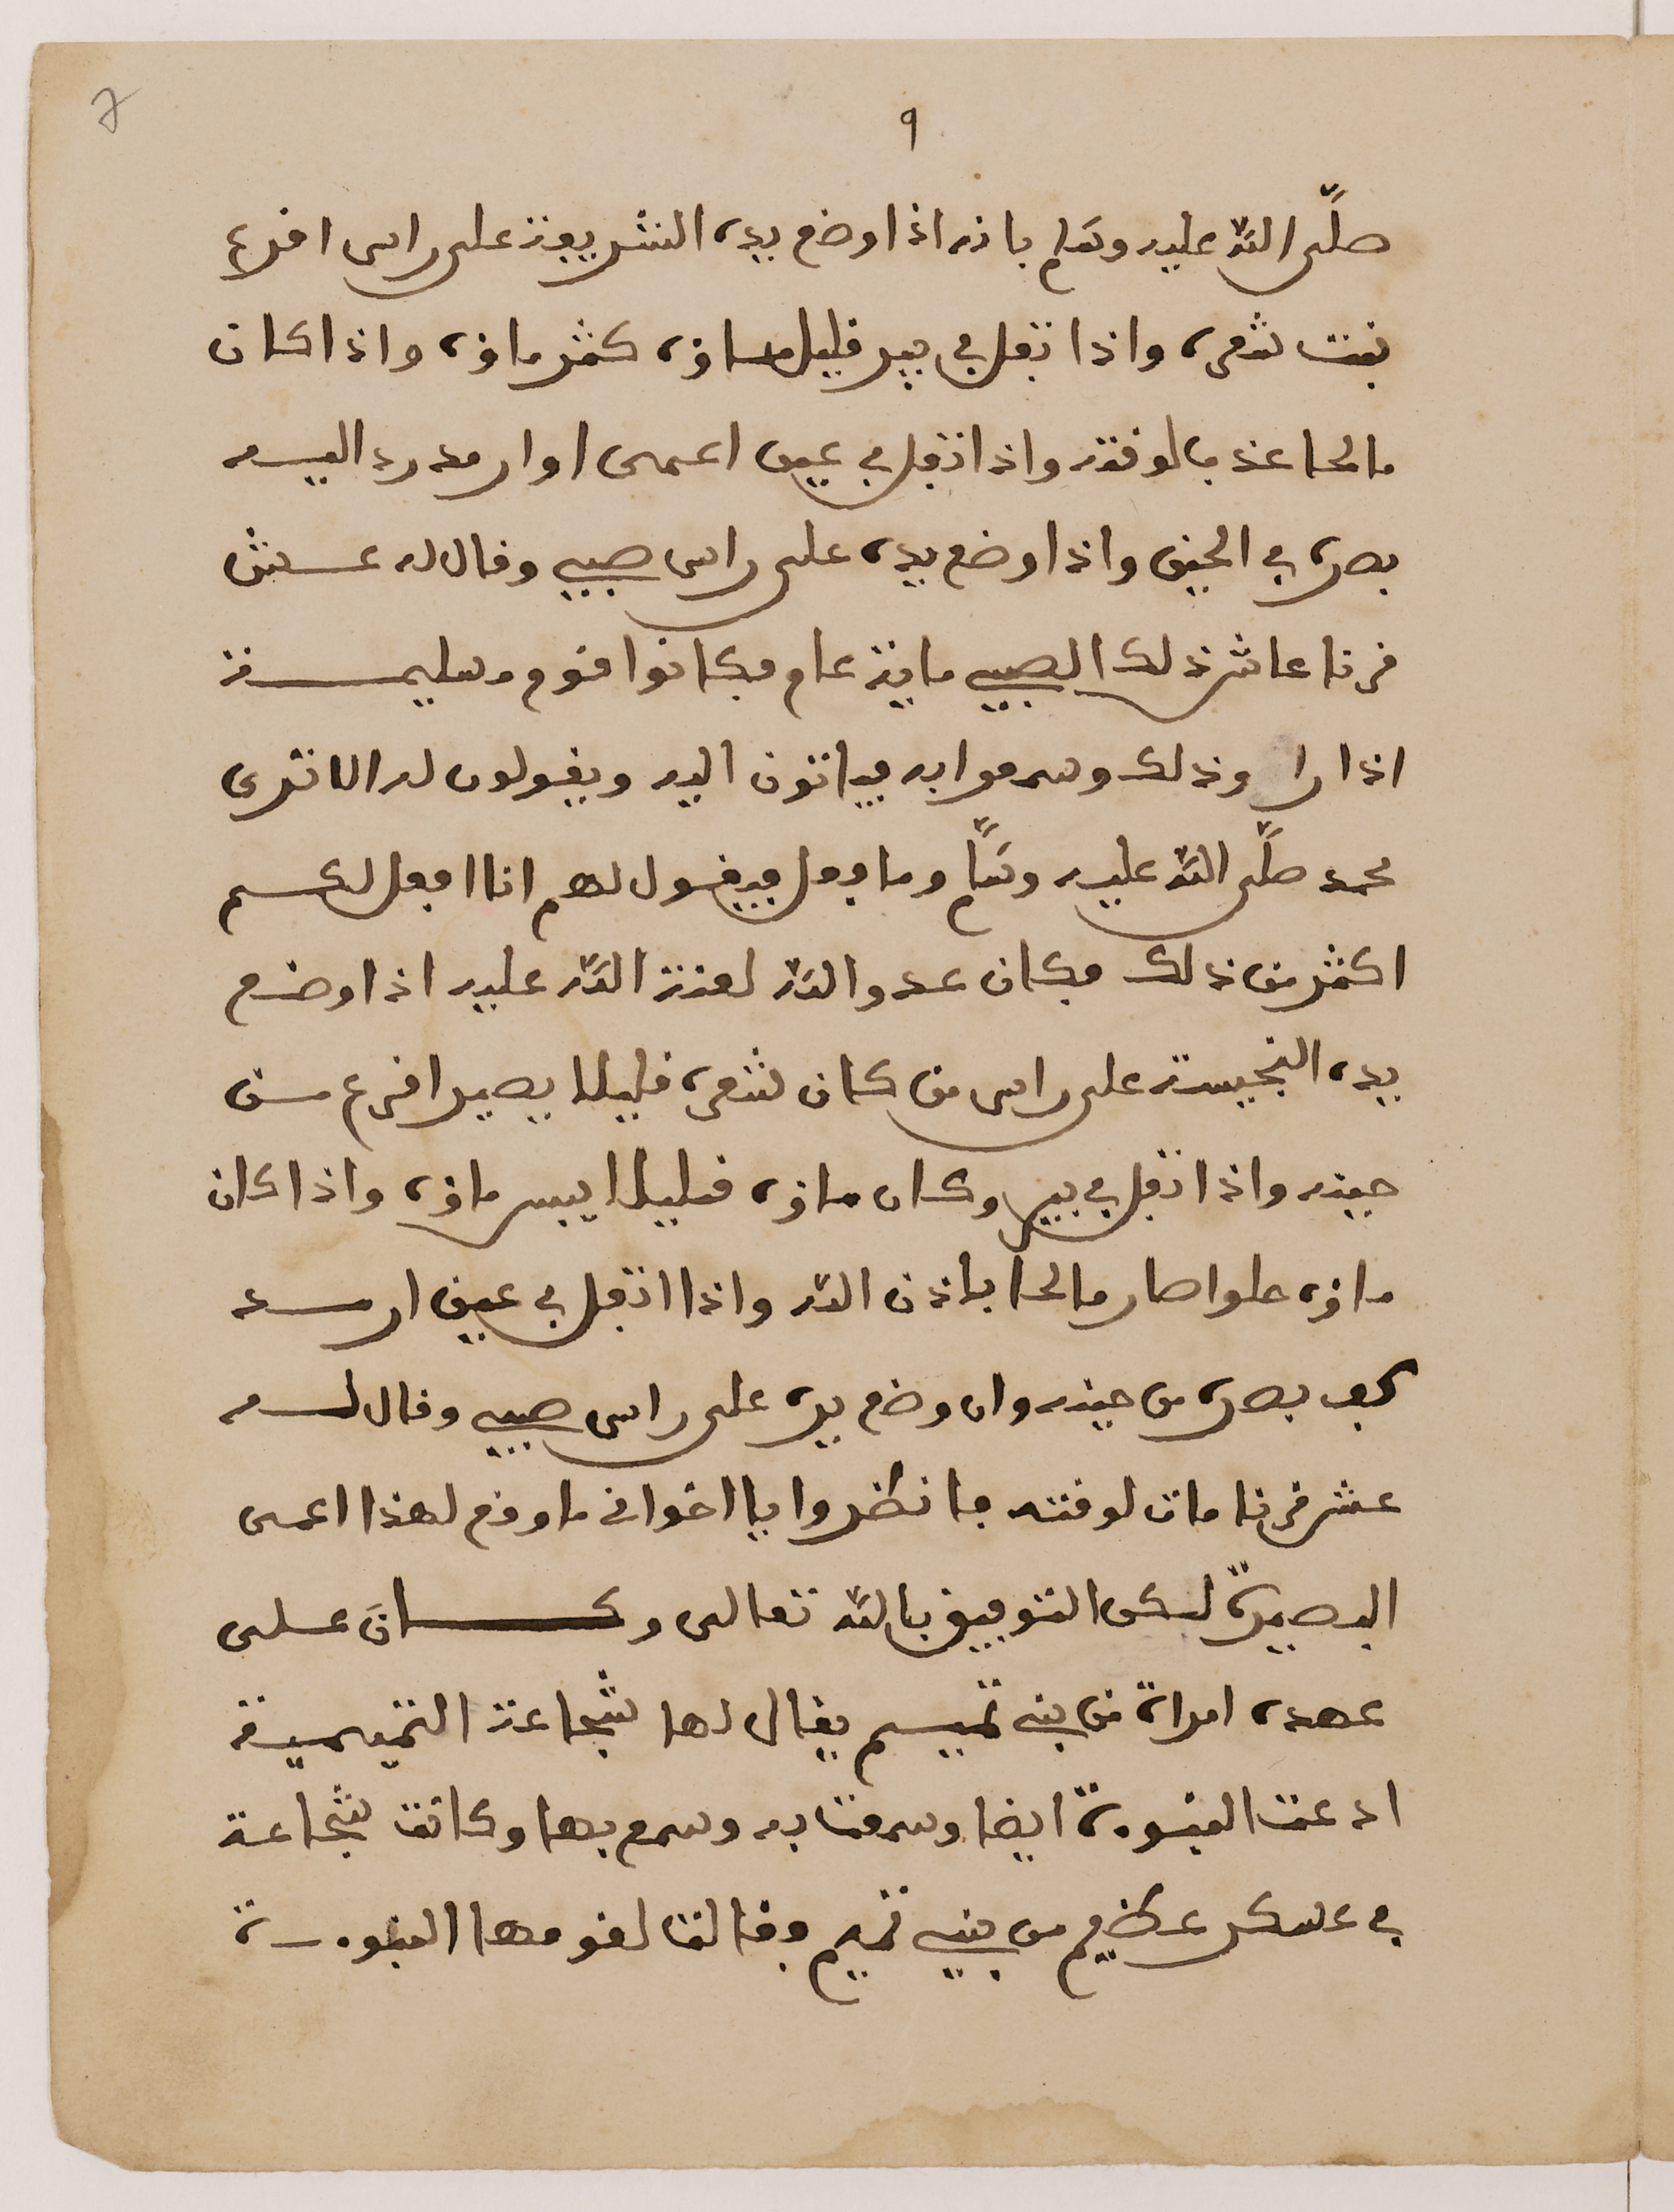 ٩
صلى الله عليه وسلم بانه اذا وضع يده الشريفة على راس اقرع
نبت شعره واذا تفل في بير قليل ماؤه كثر ماؤه واذا كان
مالحا عذب لوقته واذا تفل في عين اعمى او ارمد رد اليه
بصره في الحين واذا وضع يده على راس صبي وقال له عش
قرنا عاش ذلك الصبي ماية عام فكانوا قوم مسليمة
اذا راوذلك وسمعوا به فياتون اليه ويقولون له الا ترى
محمد صلى الله عليه وسلم وما فعل فيقول لهم انا افعل لكم
اكثر من ذلك فكان عدو الله لعنة الله عليه اذا وضع
يده النجيسة على راس من كان شعره قليلا يصير اقرع من
حينه واذا تفل في بير وكان ماؤه قليلا ييبس ماؤه واذا كان
ماؤه حلوا صار مالحا باذن الله واذا اتفل في عين ارمد
كف بصره من حينه وان وضع يده على راس صبي وقال له
عش قرنا مات لوقته فانظروا يا اخواني ما وقع لهذا اعمى
البصيرة لكن التوفيق بالله تعالى وكان على
عهده امراة من بني تميم يقال لها شجاعة التميمية
ادعت النبوءة ايضا وسمعت به وسمع بها وكانت شجاعة
في عسكر عظيم من بني تميم وقالت لقومها النبوءة